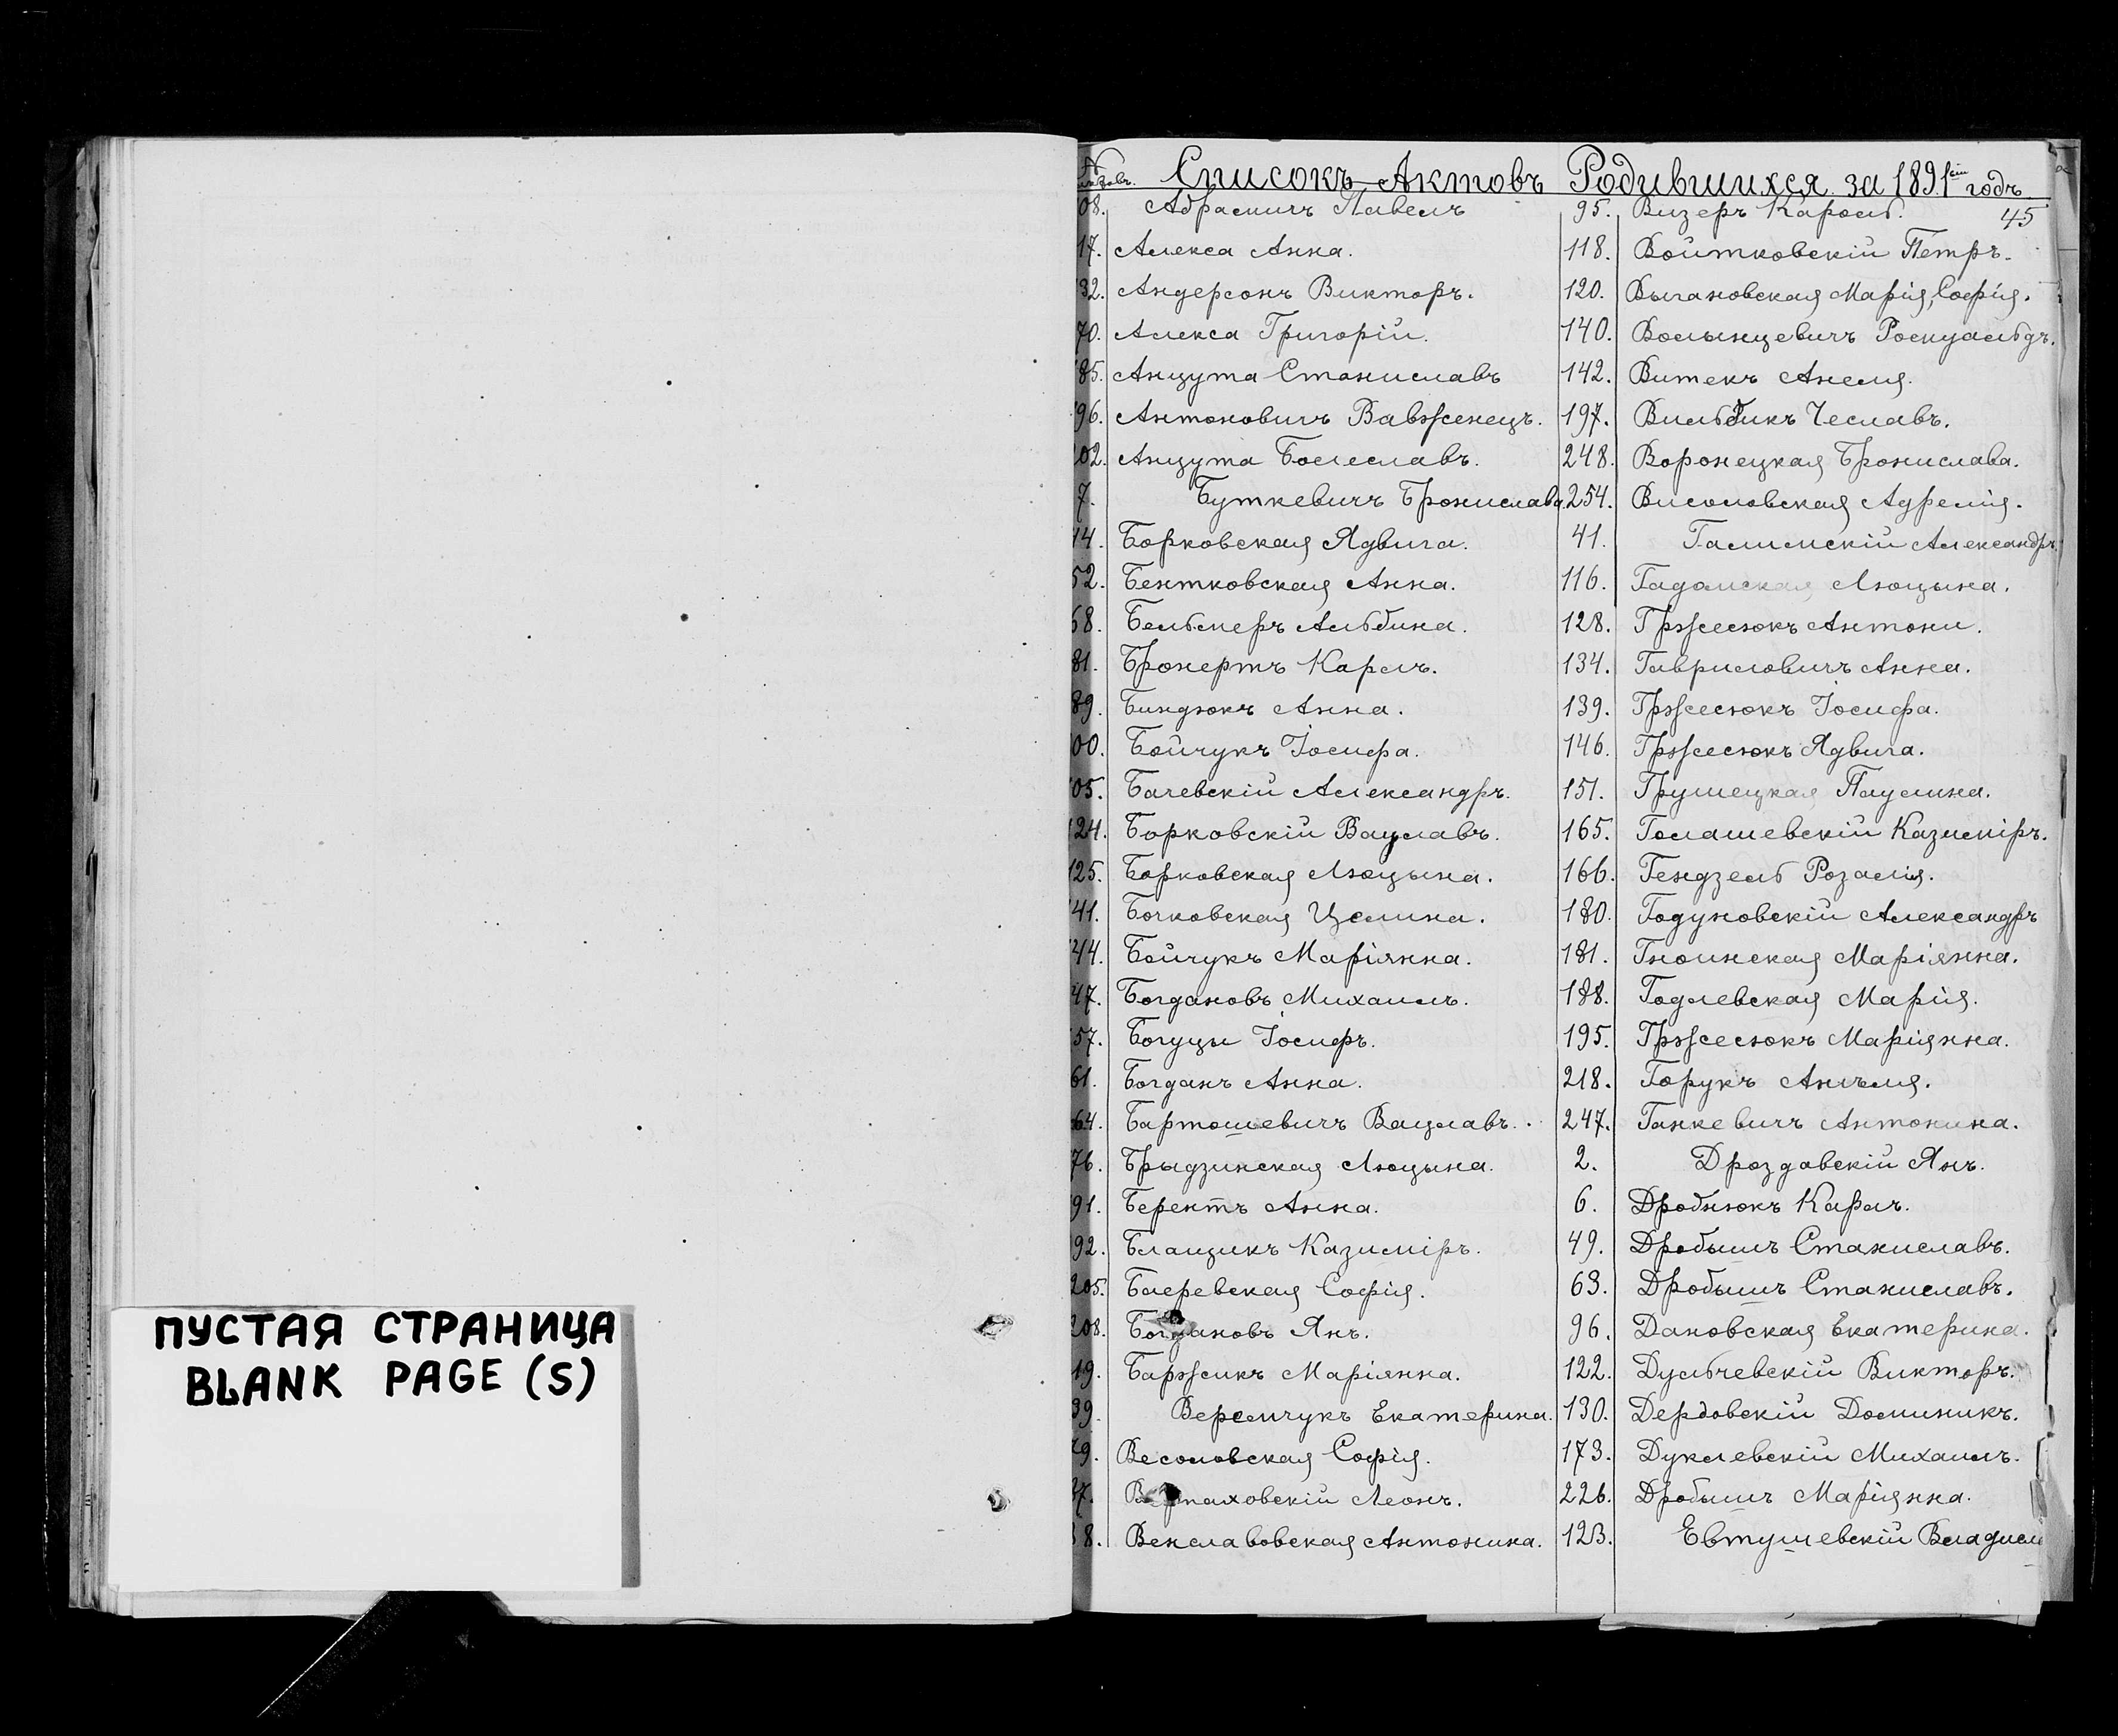 ПУСТАЯ СТРАНИЦА
BLANK PAGE (S)
Списокъ Актовъ Родившихся за 1891ый годъ
45
08. Абрамичъ Павелъ
17. Алекса Анна.
32. Андерсонъ Викторъ.
70. Алекса Григорій.
85. Анцута Станиславъ
96. Антоновичъ Вавженецъ.
102. Анцута Болеславъ.
7. Буткевичъ Бронислава
14. Борковская Ядвига.
52. Бентковская Анна.
68. Бельмеръ Альбина.
81. Бронертъ Карлъ.
89. Биндюкъ Анна.
00. Бойчукъ Іосифа.
05. Бачевскій Александръ.
124. Борковскій Вацлавъ.
125. Борковская Люцына.
41. Бочковская Целина.
44. Бойчукъ Маріянна.
47. Богдановъ Михаилъ.
57. Богуцы Іосифъ.
61. Богданъ Анна.
64. Бартошевичъ Вацлавъ.
76. Брыдзинская Люцына.
91. Берентъ Анна.
92. Блащикъ Казиміръ.
205. Баеревская Софія.
208. Богдановъ Янъ.
19. Баржикъ Маріянна.
39. Веремчукъ Екатерина.
79. Весоловская Софія.
Леонъ.
8. Венславовская Антонина.
95. Визеръ Кароль.
118. Войтковскій Петръ.
120. Выгановская Марія, Софія.
140. Волынцевичъ Ромуальдъ.
142. Витекъ Анеля.
197. Вильбикъ Чеславъ.
248. Воронецкая Бронислава.
254. Висоловская Адрелія.
41. Галимскій Александръ
116. Гадомская Люцына.
128. Гржесюкъ Антони.
134. Гавриловичъ Анна.
139. Гржесюкъ Іосифа.
146. Гржесюкъ Ядвига.
151. Грушецкая Паулина.
165. Голашевскій Казиміръ.
166. Гендзель Розалія.
180. Годуновскій Александръ
181. Гноинская Маріянна.
188. Годлевская Марія.
195. Гржесюкъ Маріянна.
218. Горукъ Ангеля.
247. Ганкевичъ Антонина.
2. Дроздавскій Янъ.
6. Дробнюкъ Карлъ.
49. Дробышъ Станиславъ.
63. Дробышъ Станиславъ.
96. Дановская Екатерина.
122. Дульчевскій Викторъ.
130. Дердовскій Доминикъ.
173. Дуклевскій Михаилъ.
226. Дробышъ Маріянна.
123. Евтушевскій Владисл